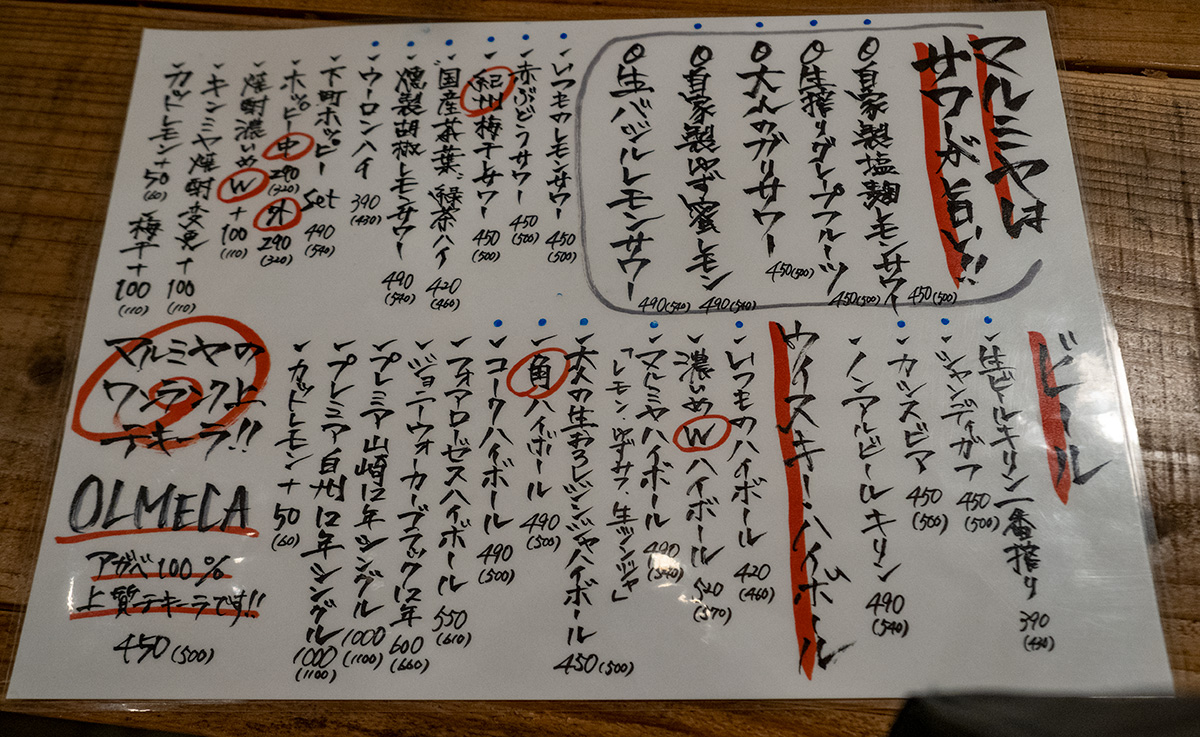 マルミヤは
サワーが旨い!!
自家製塩麹レモンサワー 450(500)
生搾りグレープフルーツ 450(500)
大人のガリサワー 450(500)
自家製ゆず蜜レモン 490(540)
生バジルレモンサワー 490(540)
いつものレモンサワー 450(500)
赤ぶどうサワー 450(500)
紀州梅干しサワー 450(500)
国産茶葉、緑茶ハイ 420(460)
燻製胡椒レモンサワー 490(540)
ウーロンハイ 390(430)
下町ホッピー set 490(540)
ホッピー 中 290(320) 外 290(320)
焼酎濃いめ W +100(110)
キンミヤ焼酎変更 +100(110)
カットレモン +50(60) 梅干 +100(110)
ビール
生ビールキリン一番搾り 390(430)
シャンディガフ 450(500)
カシスビア 450(500)
ノンアルビールキリン 490(540)
ウイスキー・ハイボール
いつものハイボール 420(460)
濃いめ W ハイボール 520(570)
マルミヤハイボール 490(540)
「レモン・ゆずみつ、生ジンジャ」
大人の生おろしジンジャハイボール 450(500)
角ハイボール 490(500)
コークハイボール 490(500)
フォアローゼスハイボール 550(610)
ジョニーウォーカーブラック12年 600(660)
プレミア山崎12年シングル 1000(1100)
プレミア白州12年シングル 1000(1100)
カットレモン +50(60)
マルミヤの
ワンランク上
テキーラ!!
OLMECA
アガベ100%
上質テキーラです!!
450(500)